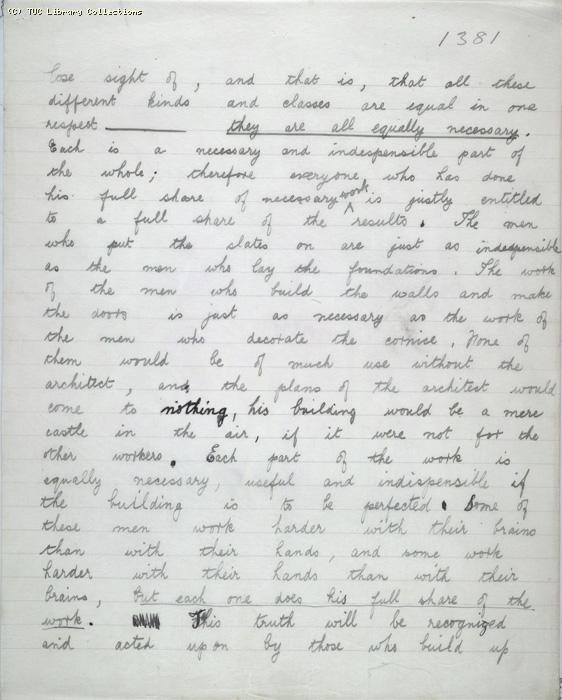 (C) TUC Library Collections
1381
lose sight of, and that is, that all these
different kinds and classes are equal in one
respect ——— they are all equally necessary.
Each is a necessary and indespensible part of
the whole; therefore everyone who has done
his full share of necessary work is justly entitled
to a full share of the results. The men
who put the slates on are just as indespensible
as the men who lay the foundations. The work
of the men who build the walls and make
the doors is just as necessary as the work of
the men who decorate the cornice. None of
them would be of much use without the
architect, and the plans of the architect would
come to nothing, his building would be a mere
castle in the air, if it were not for the
other workers. Each part of the work is
equally necessary, useful and indispensible if
the building is to be perfected. Some of
these men work harder with their brains
than with their hands, and some work
harder with their hands than with their
brains, but each one does his full share of the
work. This truth will be recognized
and acted upon by those who build up